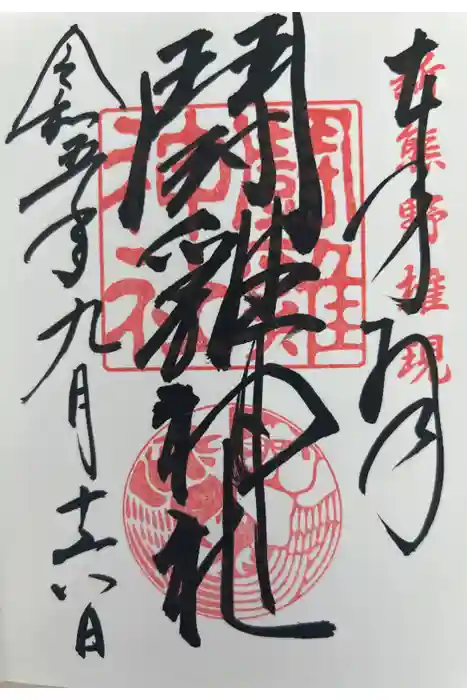 奉拝
新熊野権現
闘雞神社
闘雞神社
令和五年九月十六日